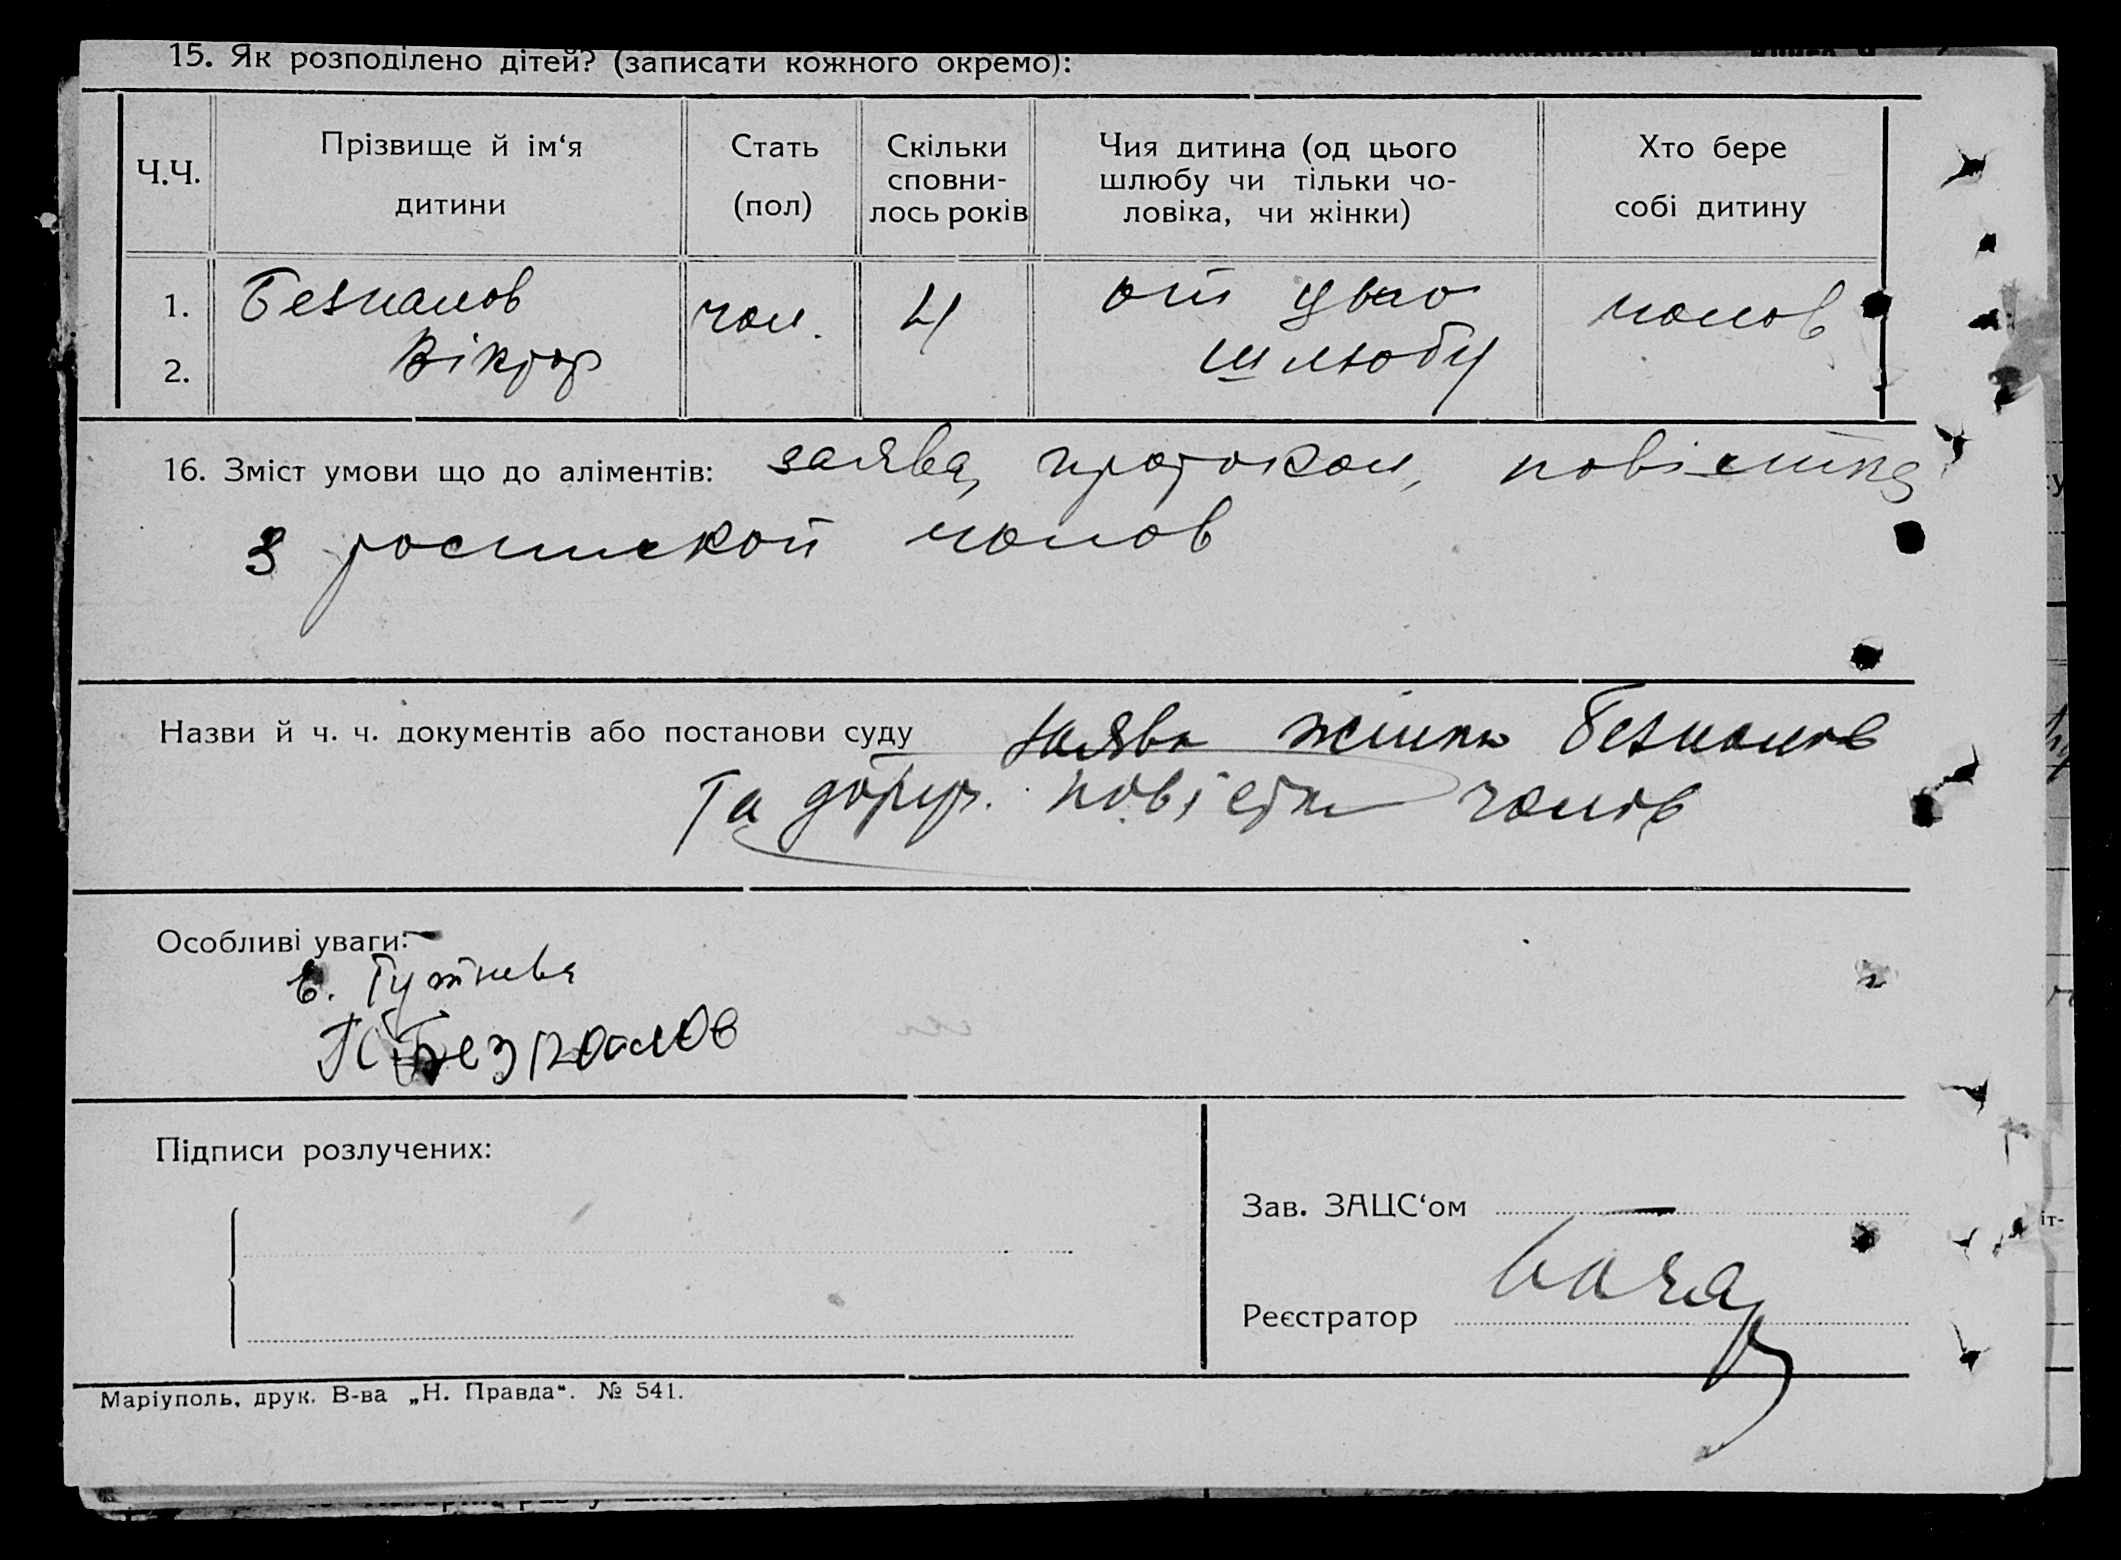 15. Як розподілено дітей? (записати кожного окремо):
Ч.Ч.
Прізвище й ім‘я
дитини
Стать
(пол)
Скільки
сповни-
лось років
Чия дитина (од цього
шлюбу чи тільки чо-
ловіка, чи жінки)
Хто бере
собі дитину
1.
Безпалов
чол.
4
от цього
чолов
2.
Віктор
шлюбу
16. Зміст умови що до аліментів: заява, протокол, повістка
з роспиской чолов
Назви й ч. ч. документів або постанови суду заява жінки Безпалов
та повістки чолов
Особливі уваги:
Безпалов
Підписи розлучених:
Зав. ЗАЦС‘ом
Реєстратор
Маріуполь, друк. В-ва „Н. Правда“. № 541.